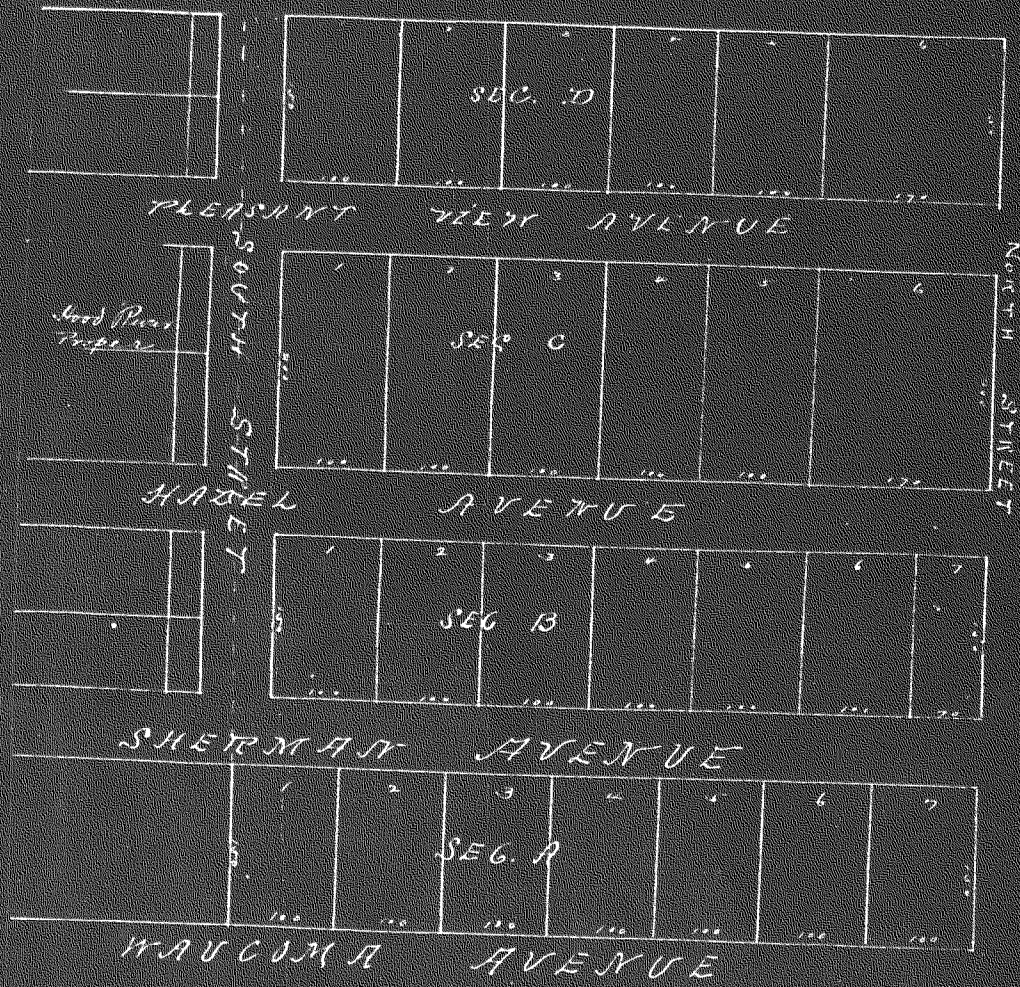 2 3 4 5 6
SEC. D
100 100 100 100 100 170
PLEASANT VIEW AVENUE
SOUTH STREET
NORTH STREET
1 2 3 4 5 6
Hood River
Proper
SEC C
100 100 100 100 100 170
HAZEL AVENUE
1 2 3 4 5 6 7
SEC B
100 100 100 100 100 100 70
SHERMAN AVENUE
1 2 3 4 5 6 7
SEC. A
150
100 100 100 100 100 100 100
WAUCOMA AVENUE